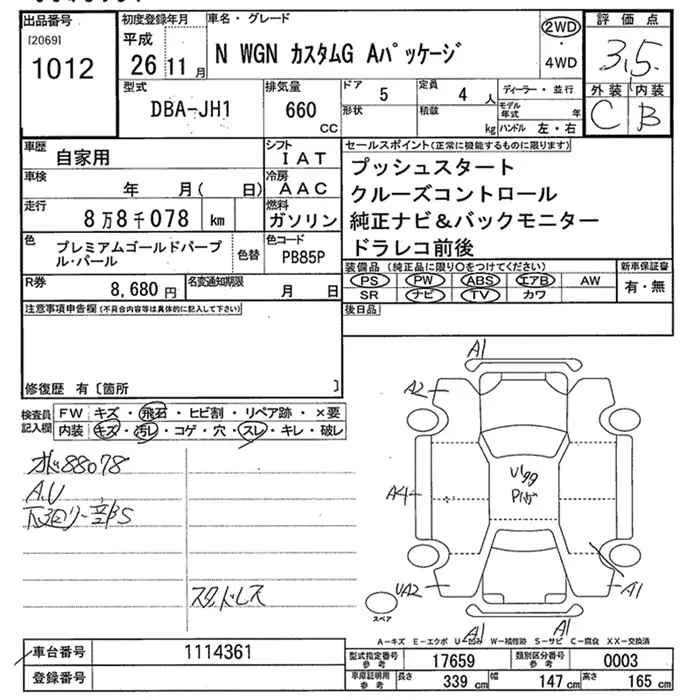 出品番号
[2069]
1012
初度登録年月
平成
26 11月
車名・グレード
N WGN カスタムG Aパッケージ
2WD
・
4WD
評価点
3.5
外装 内装
C B
型式
DBA-JH1
排気量
660
cc
ドア 5
定員 4 人
形状
積載 kg
ディーラー・並行
モデル年式 年
ハンドル 左・右
車歴
自家用
シフト
IAT
車検
年 月( 日)
冷房
AAC
走行
8万8千078 km
燃料
ガソリン
色
プレミアムゴールドパープル・パール
色替
色コード
PB85P
R券
8,680 円
名変通知期限
月 日
セールスポイント(正常に機能するものに限ります)
プッシュスタート
クルーズコントロール
純正ナビ&バックモニター
ドラレコ前後
装備品(純正品に限り○をつけてください)
PS PW ABS エアB AW
SR ナビ TV カワ
新車保証書
有・無
後日品
注意事項申告欄(不具合内容等は具体的に記入して下さい)
修復歴 有〔箇所 〕
検査員記入欄
FW キズ・飛石・ヒビ割・リペア跡・×要
内装 キズ・汚レ・コゲ・穴・スレ・キレ・破レ
オド88078
A.U
下回り一部S
スタッドレス
A1
A2
A4
UA2
A1
A1
スペア
A-キズ E-エクボ U-凹み W-補修跡 S-サビ C-腐食 XX-交換済
車台番号
1114361
登録番号
型式指定番号
参考
17659
類別区分番号
参考
0003
車庫証明用
参考
長さ 339 cm
幅 147 cm
高さ 165 cm